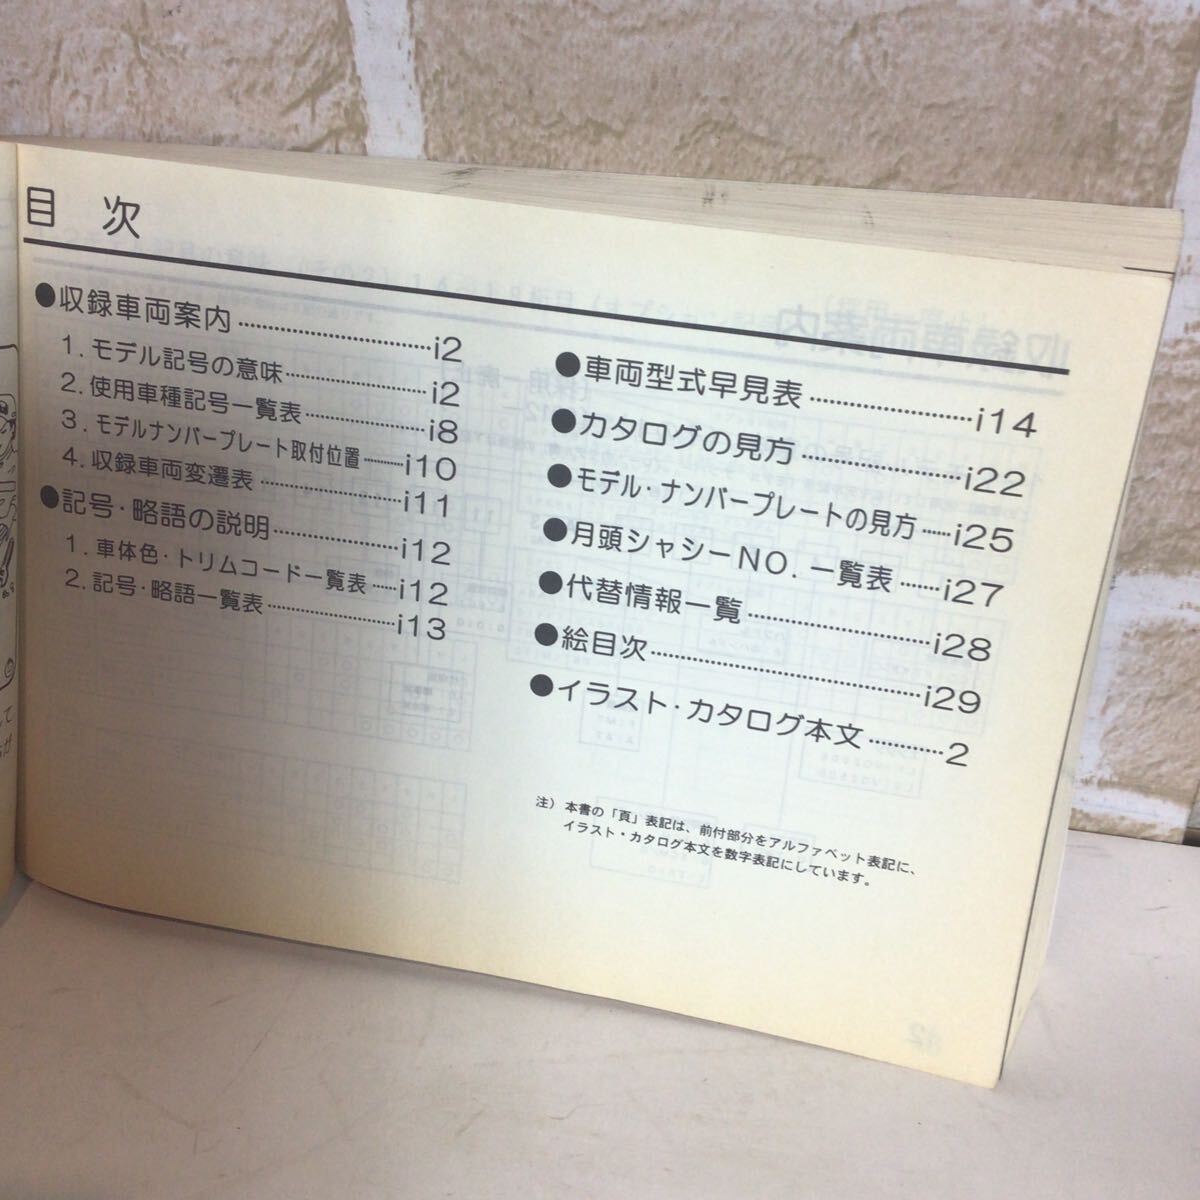 目 次
●収録車両案内……………………i2
1. モデル記号の意味……………i2
2. 使用車種記号一覧表…………i8
3. モデルナンバープレート取付位置……i10
4. 収録車両変遷表………………i11
●記号・略語の説明………………i12
1. 車体色・トリムコード一覧表……i12
2. 記号・略語一覧表……………i13
●車両型式早見表…………………i14
●カタログの見方…………………i22
●モデル・ナンバープレートの見方……i25
●月頭シャシーNO. 一覧表………i27
●代替情報一覧……………………i28
●絵目次……………………………i29
●イラスト・カタログ本文…………2
注) 本書の「頁」表記は、前付部分をアルファベット表記に、
イラスト・カタログ本文を数字表記にしています。